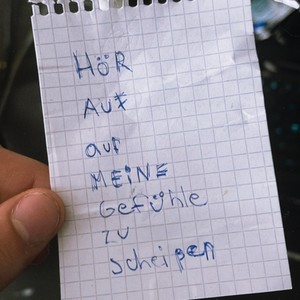 HÖR
AUf
auf
MEiNE
Gefühle
ZU
scheißen